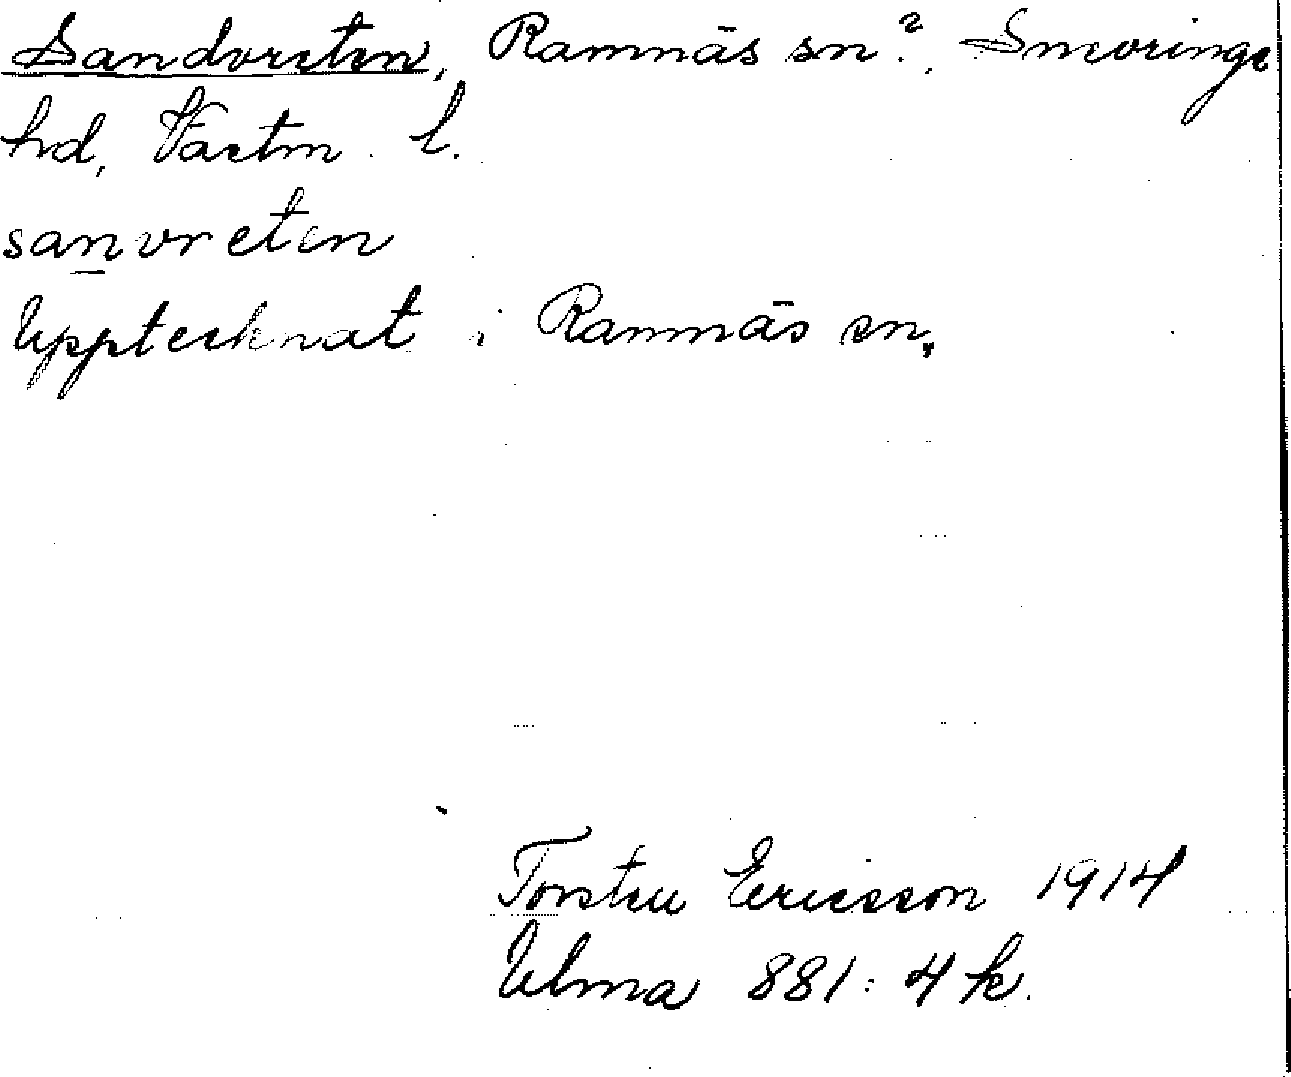 Sandvreten, Ramnäs sn?, Snevringe
hd, Västm. l.
sanvreten
Upptecknat i Ramnäs sn.
Torsten Ericsson 1914
Ulma 881:4 k.